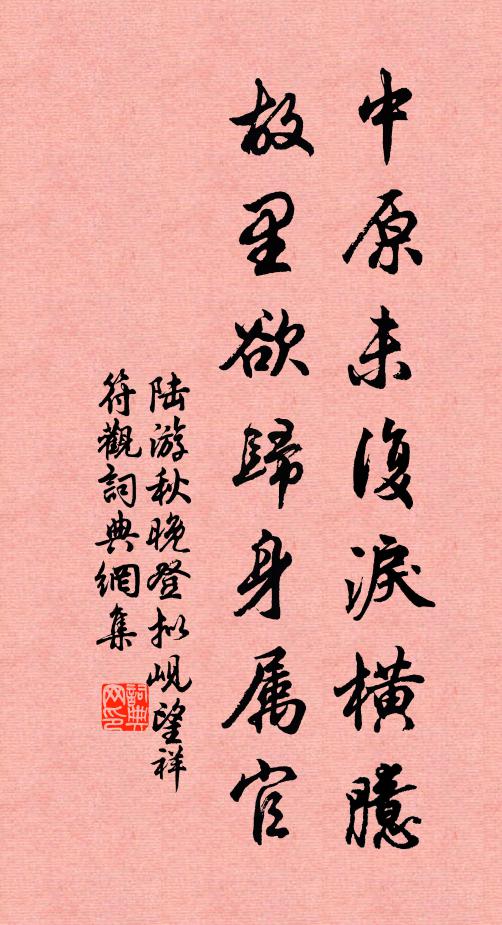 中原未復淚橫臆
故里欲歸身属官
陆游秋晚登拟岘望祥
符觀詞典網集
詞典
网印